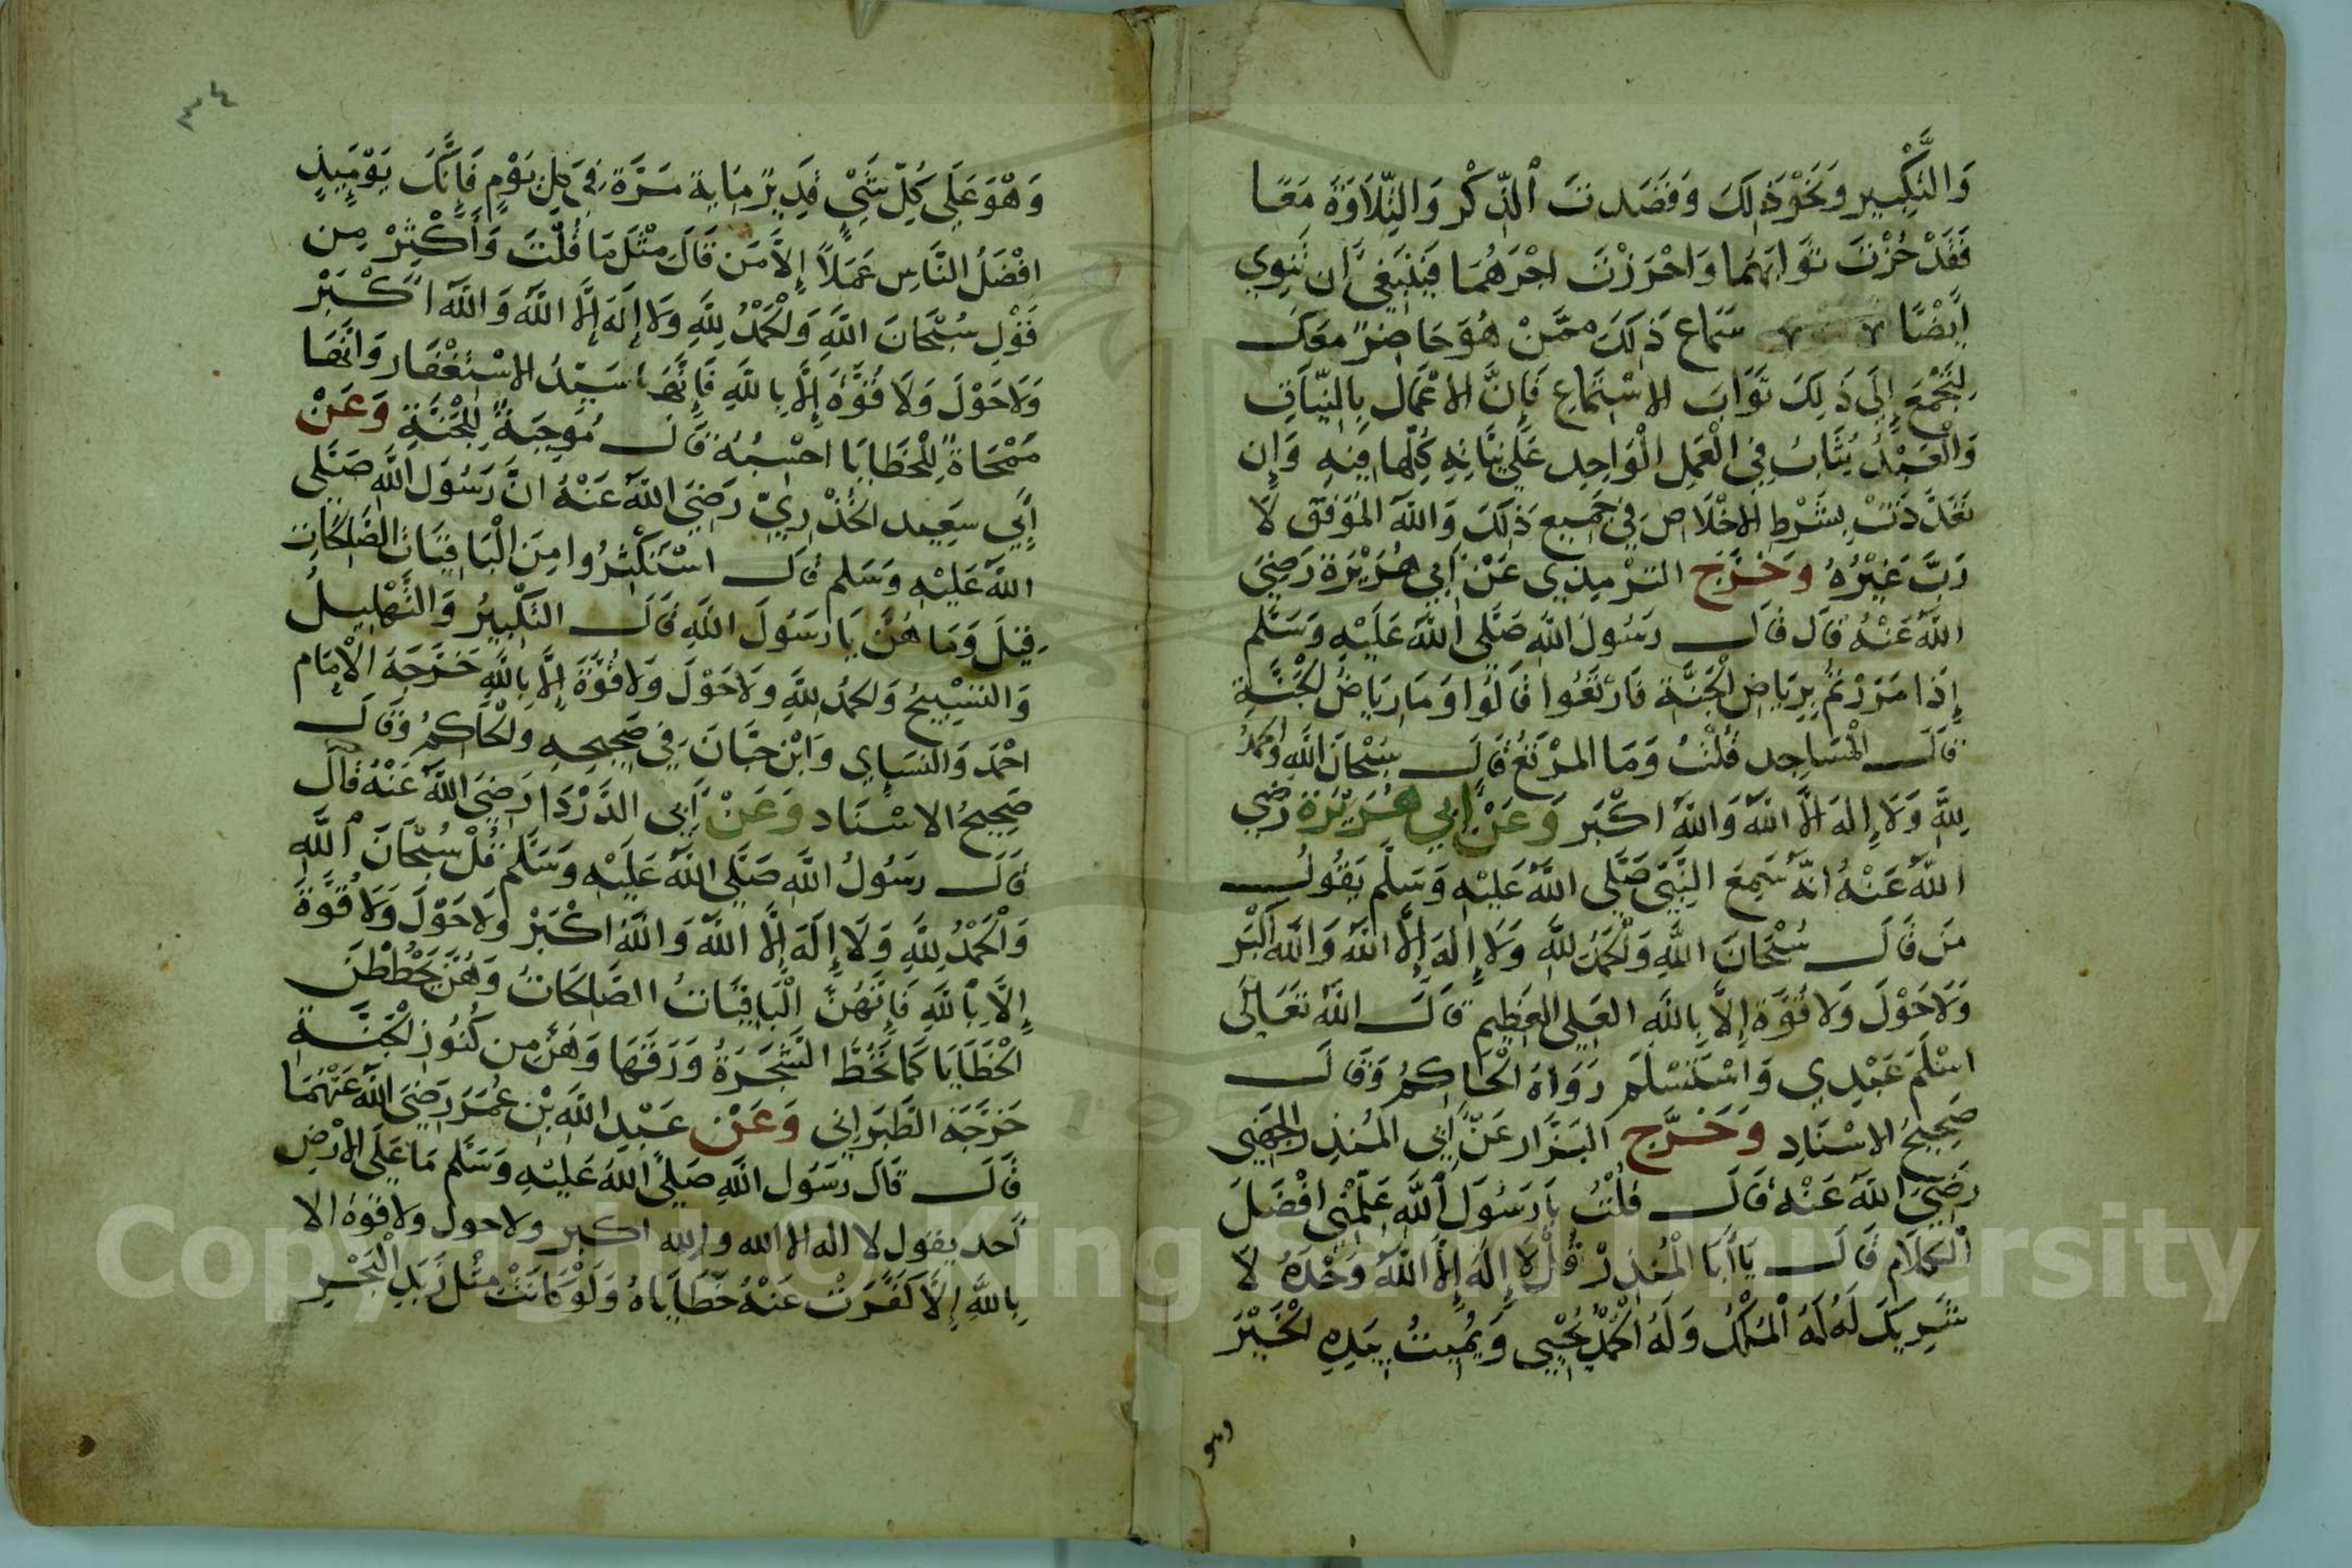 وَالتَّكْبِيرِ وَنَحْوَ ذَلِكَ وَقَصَدتَ الذِّكْرَ وَالتِّلَاوَةَ مَعًا
فَقَدْ حُزْتَ ثَوَابَهُمَا وَاحْرَزْتَ اجْرَهُمَا فَيَنْبَغِي ان تَنْوِي
ايْضًا سَمَاع ذَلِكَ مِمَّنْ هُوَ حَاضِرٌ مَعَكَ
لِتَجْمَعَ إِلَى ذَلِكَ ثَوَابَ الاسْتِمَاعِ فَإِنَّ الاعْمَالَ بِالنِّيَّاتِ
وَالْعَبْدُ يُثَابُ فِي الْعَمَلِ الْوَاحِدِ عَلَى نِيَّاتِهِ كُلِّهَا فِيهِ وَإِن
تَعَدَّدَتْ بِشَرْطِ الاخْلَاصِ فِي جَمِيعِ ذَلِكَ وَاللَّهُ الْمُوَفِّق لَا
رَبَّ غَيْرُهُ وَخَرَّجَ التِّرْمِيذِي عَنْ أَبِي هُرَيْرَةَ رَضِيَ
اللَّهُ عَنْهُ قَالَ قَالَ رَسُولُ اللَّهِ صَلَّى اللَّهُ عَلَيْهِ وَسَلَّم
إِذَا مَرَرْتُمْ بِرِيَاضِ الْجَنَّةِ فَارْتَعُوا قَالُوا وَمَا رِيَاضُ الْجَنَّةِ
قَالَ الْمَسَاجِد قُلْتُ وَمَا الْمَرْتَعُ قَالَ سُبْحَانَ اللَّهِ وَالْحَمْدُ
لِلَّهِ وَلَا إِلَهَ الَّا اللَّهُ وَاللَّهُ اكْبَر وَعَنْ أَبِي هُرَيْرَةَ رَضِيَ
اللَّهُ عَنْهُ انَّهُ سَمِعَ النَّبِيَّ صَلَّى اللَّهُ عَلَيْهِ وَسَلَّم يَقُولُ
مَن قَالَ سُبْحَانَ اللَّهِ وَالْحَمْدُ لِلَّهِ وَلَا إِلَهَ إِلَّا اللَّهُ وَاللَّهُ أَكْبَر
وَلَا حَوْلَ وَلَا قُوَّةَ إِلَّا بِاللَّهِ الْعَلِي الْعَظِيم قَالَ اللَّهُ تَعَالَى
اسْلَمَ عَبْدِي وَاسْتَسْلَمَ رَوَاهُ الْحَاكِمُ وَقَالَ
صَحِيحُ الاسْنَادِ وَخَرَّجَ الْبَزَّار عَنْ أَبِي الْمُنْذِر الْجُهَنِي
رَضِيَ اللَّهُ عَنْهُ قَالَ قُلْتُ يَا رَسُولَ اللَّهِ عَلِّمْنِي افْضَلَ
الْكَلَام قَالَ يَا أَبَا الْمُنْذِرْ قُلْ لَا إِلَهَ إِلَّا اللَّهُ وَحْدَهُ لَا
شَرِيكَ لَهُ لَهُ الْمُلْكُ وَلَهُ الْحَمْدُ يُحْيِي وَيُمِيتُ بِيَدِهِ الْخَيْرُ
وهو
٣٤
وَهْوَ عَلَى كُلِّ شَيْءٍ قَدِيرٌ مِايَةَ مَرَّةٍ فِي كُلِّ يَوْمٍ فَإِنَّكَ يَوْمَيِذٍ
افْضَلُ النَّاسِ عَمَلاً إِلاَّ مَن قَالَ مِثْلَ مَا قُلْتَ وَأَكْثِرْ مِن
قَوْلِ سُبْحَانَ اللَّهِ وَالْحَمْدُ لِلَّهِ وَلَا إِلَهَ إِلَّا اللَّهُ وَاللَّهُ اكْبَرْ
وَلَا حَوْلَ وَلَا قُوَّةَ إِلَّا بِاللَّهِ فَإِنَّهَا سَيِّدُ الاسْتِغْفَار وَانَّهَا
مَمْحَاةٌ لِلْخَطَايَا احْسِبُهُ قَالَ مُوجِبَةٌ لِلْجَنَّةِ وَعَنْ
أَبِي سَعِيد الْخُدْرِيِّ رَضِيَ اللَّهُ عَنْهُ انَّ رَسُولَ اللَّهِ صَلَّى
اللَّهُ عَلَيْهِ وَسَلَّم قَالَ اسْتَكْثِرُوا مِنَ الْبَاقِيَاتِ الصَّالِحَاتِ
قِيلَ وَمَا هُنَّ يَا رَسُولَ اللَّهِ قَالَ التَّكْبِيرُ وَالتَّهْلِيلُ
وَالتَّسْبِيحُ وَالْحَمْدُ لِلَّهِ وَلَا حَوْلَ وَلَا قُوَّةَ إِلَّا بِاللَّهِ خَرَّجَهُ الْإِمَام
احْمَدَ وَالنَّسَايِي وَابْن حِبَّانَ فِي صَحِيحِهِ وَالْحَاكِمُ وَقَالَ
صَحِيحُ الاسْنَاد وَعَنْ أَبِي الدَّرْدَا رَضِيَ اللَّهُ عَنْهُ قَالَ
قَالَ رَسُولُ اللَّهِ صَلَّى اللَّهُ عَلَيْهِ وَسَلَّم قُلْ سُبْحَانَ اللَّهِ
وَالْحَمْدُ لِلَّهِ وَلَا إِلَهَ إِلَّا اللَّهُ وَاللَّهُ اكْبَرْ وَلَا حَوْلَ وَلَا قُوَّةَ
إِلَّا بِاللَّهِ فَإِنَّهُنَّ الْبَاقِيَاتُ الصَّالِحَاتُ وَهُنَّ يَحْطُطْنَ
الْخَطَايَا كَمَا تَحُطُّ الشَّجَرَةُ وَرَقَهَا وَهُنَّ مِن كُنُوزِ الْجَنَّةِ
خَرَّجَهُ الطَّبَرَانِي وَعَنْ عَبْدِ اللَّهِ بْنِ عُمَرَ رَضِيَ اللَّهُ عَنْهُمَا
قَالَ قَالَ رَسُولُ اللَّهِ صَلَّى اللَّهُ عَلَيْهِ وَسَلَّم مَا عَلَى الارْضِ
أحد يقول لا اله الا الله والله اكبر ولا حول ولا قوة الا
بِاللَّهِ إِلَّا كَفَّرَتْ عَنْهُ خَطَايَاهُ وَلَوْ كَانَتْ مِثْلَ زَبَدِ الْبَحْرِ
Copyright © King Saud University